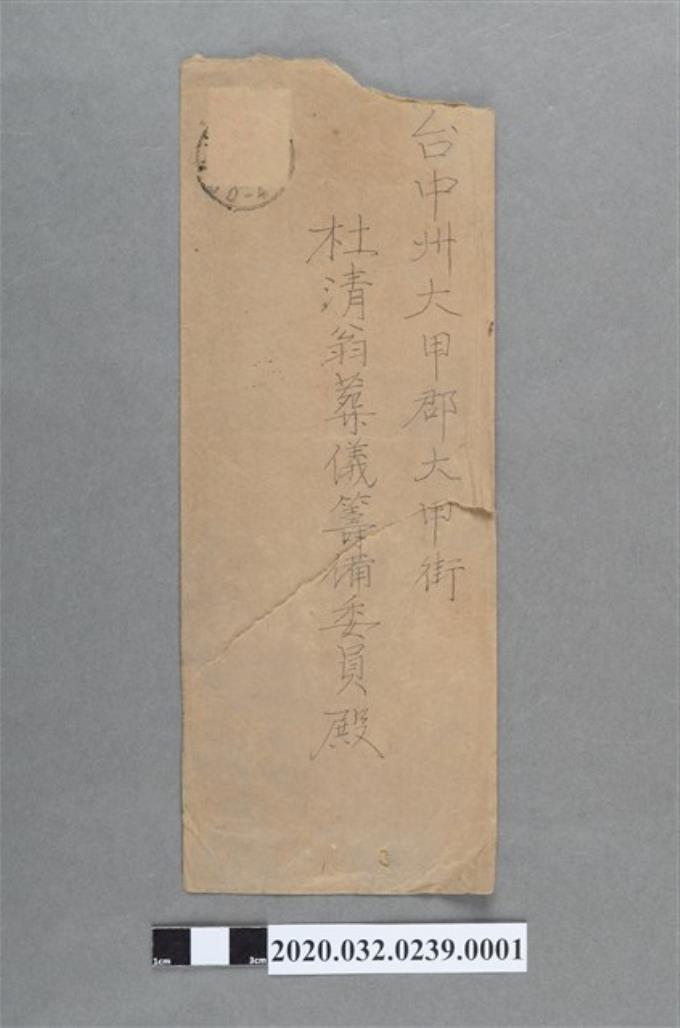 台中州大甲郡大甲街
杜清翁葬儀籌備委員殿
1cm
3cm
2020.032.0239.0001